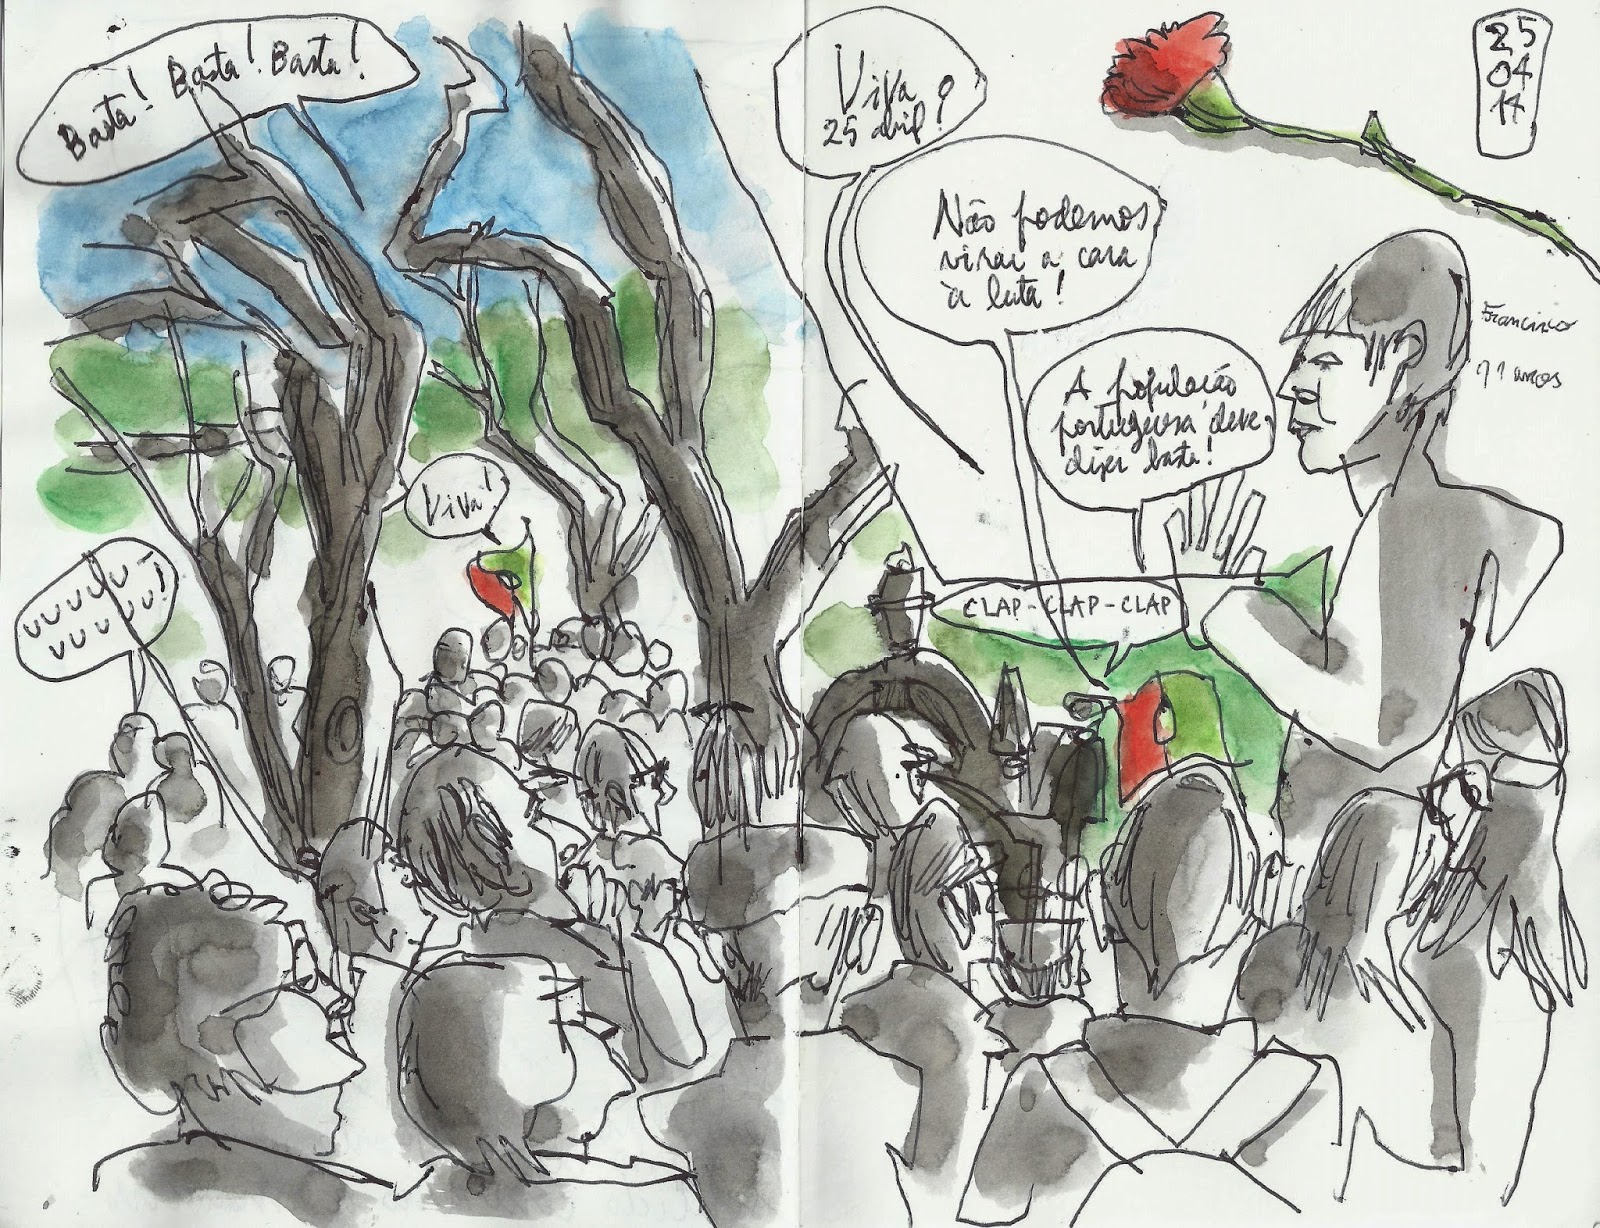 Basta! Basta! Basta!
Viva
25 abril!
25
04
14
Não podemos
virar a cara
à luta!
Francisco
11 anos
A população
portuguesa deve
dizer basta!
Viva!
UUUUU
UUUUU!
CLAP-CLAP-CLAP